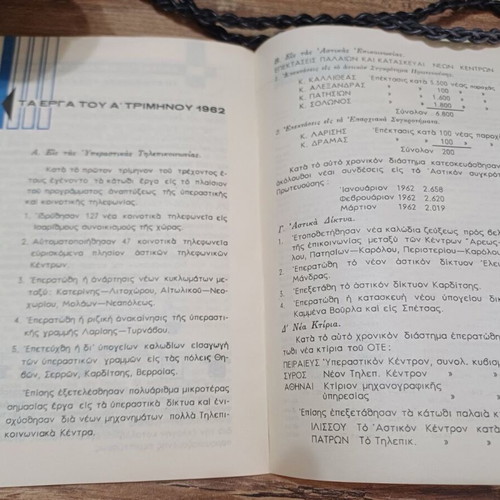 ΤΑ ΕΡΓΑ ΤΟΥ Α' ΤΡΙΜΗΝΟΥ 1962
Α. Εἰς τὰς Ὑπεραστικὰς Τηλεπικοινωνίας.
Κατὰ τὸ πρῶτον τρίμηνον τοῦ τρέχοντος ἔ-
τους ἐγένοντο τὰ κάτωθι ἔργα εἰς τὸ πλαίσιον
τοῦ προγράμματος ἀναπτύξεως τῆς ὑπεραστικῆς
καὶ κοινοτικῆς τηλεφωνίας.
1. Ἱδρύθησαν 127 νέα κοινοτικὰ τηλεφωνεῖα εἰς
ἰσαρίθμους συνοικισμοὺς τῆς χώρας.
2. Αὐτοματοποιήθησαν 47 κοινοτικὰ τηλεφωνεῖα
εὑρισκόμενα πλησίον ἀστικῶν τηλεφωνικῶν
Κέντρων.
3. Ἐπερατώθη ἡ ἀνάρτησις νέων κυκλωμάτων με-
ταξύ: Κατερίνης—Λιτοχώρου, Αἰτωλικοῦ—Νεο-
χωρίου, Μολάων—Νεαπόλεως.
4. Ἐπερατώθη ἡ ριζικὴ ἀνακαίνισις τῆς ὑπεραστι-
κῆς γραμμῆς Λαρίσης—Τυρνάβου.
5. Ἐπετεύχθη ἡ δι' ὑπογείων καλωδίων εἰσαγωγὴ
τῶν ὑπεραστικῶν γραμμῶν εἰς τὰς πόλεις Θη-
βῶν, Σερρῶν, Καρδίτσης, Βερροίας.
Ἐπίσης ἐξετελέσθησαν πολυάριθμα μικροτέρας
σημασίας ἔργα εἰς τὰ ὑπεραστικὰ δίκτυα καὶ ἐνι-
σχύθησαν διὰ νέων μηχανημάτων πολλὰ Τηλεπι-
κοινωνιακὰ Κέντρα.
Β. Εἰς τὰς Ἀστικὰς Ἐπικοινωνίας.
ΕΠΕΚΤΑΣΕΙΣ ΠΑΛΑΙΩΝ ΚΑΙ ΚΑΤΑΣΚΕΥΑΙ ΝΕΩΝ ΚΕΝΤΡΩΝ
1. Ἐπεκτάσεις εἰς τὸ ἀστικὸν Συγκρότημα Πρωτευούσης:
Κ. ΚΑΛΛΙΘΕΑΣ Ἐπέκτασις κατὰ 3.300 νέας παροχὰς
Κ. ΑΛΕΞΑΝΔΡΑΣ » » 100 »
Κ. ΠΑΤΗΣΙΩΝ » » 1.600 »
Κ. ΣΟΛΩΝΟΣ » » 1.800 »
Σύνολον 6.800
2. Ἐπεκτάσεις εἰς τὰ Ἐπαρχιακὰ Συγκροτήματα.
Κ. ΛΑΡΙΣΗΣ Ἐπέκτασις κατὰ 100 νέας παροχ
Κ. ΔΡΑΜΑΣ » » 100 » »
Σύνολον 200
Κατὰ τὸ αὐτὸ χρονικὸν διάστημα κατεσκευάσθησαν
ἀκόλουθοι νέαι συνδέσεις εἰς τὸ Ἀστικὸν συγκρότ
Πρωτευούσης:
Ἰανουάριον 1962 2.658
Φεβρουάριον 1962 2.620
Μάρτιον 1962 2.019
Γ. Ἀστικὰ Δίκτυα.
1. Ἐτοποθετήθησαν νέα καλώδια ζεύξεως πρὸς βελ
τῆς ἐπικοινωνίας μεταξὺ τῶν Κέντρων "Ἄρεως-
λου, Πατησίων—Καρόλου, Περιστερίου—Καρόλου
2. Ἐπερατώθη τὸ νέον ἀστικὸν δίκτυον Ἐλευ
Μάνδρας.
3. Ἐπεξετάθη τὸ ἀστικὸν δίκτυον Καρδίτσης.
4. Ἐπερατώθη ἡ κατασκευὴ νέου ὑπογείου δικ
Καμμένα Βοῦρλα καὶ εἰς Σπέτσας.
Δ' Νέα Κτίρια.
Κατὰ τὸ αὐτὸ χρονικὸν διάστημα ἐπερατώ
τωθι νέα κτίρια τοῦ ΟΤΕ:
ΠΕΙΡΑΙΕΥΣ Ὑπεραστικὸν Κέντρον, συνολ. κυβισμ
ΣΥΡΟΣ Νέον Τηλεπ. Κέντρον »
ΑΘΗΝΑΙ Κτίριον μηχανογραφικῆς
ὑπηρεσίας »
Ἐπίσης ἐπεξετάθησαν τὰ κάτωθι παλαιὰ κ
ΙΛΙΣΣΟΥ Τὸ Ἀστικὸν Κέντρον κατὰ
ΠΑΤΡΩΝ Τὸ Τηλεπικ. » »